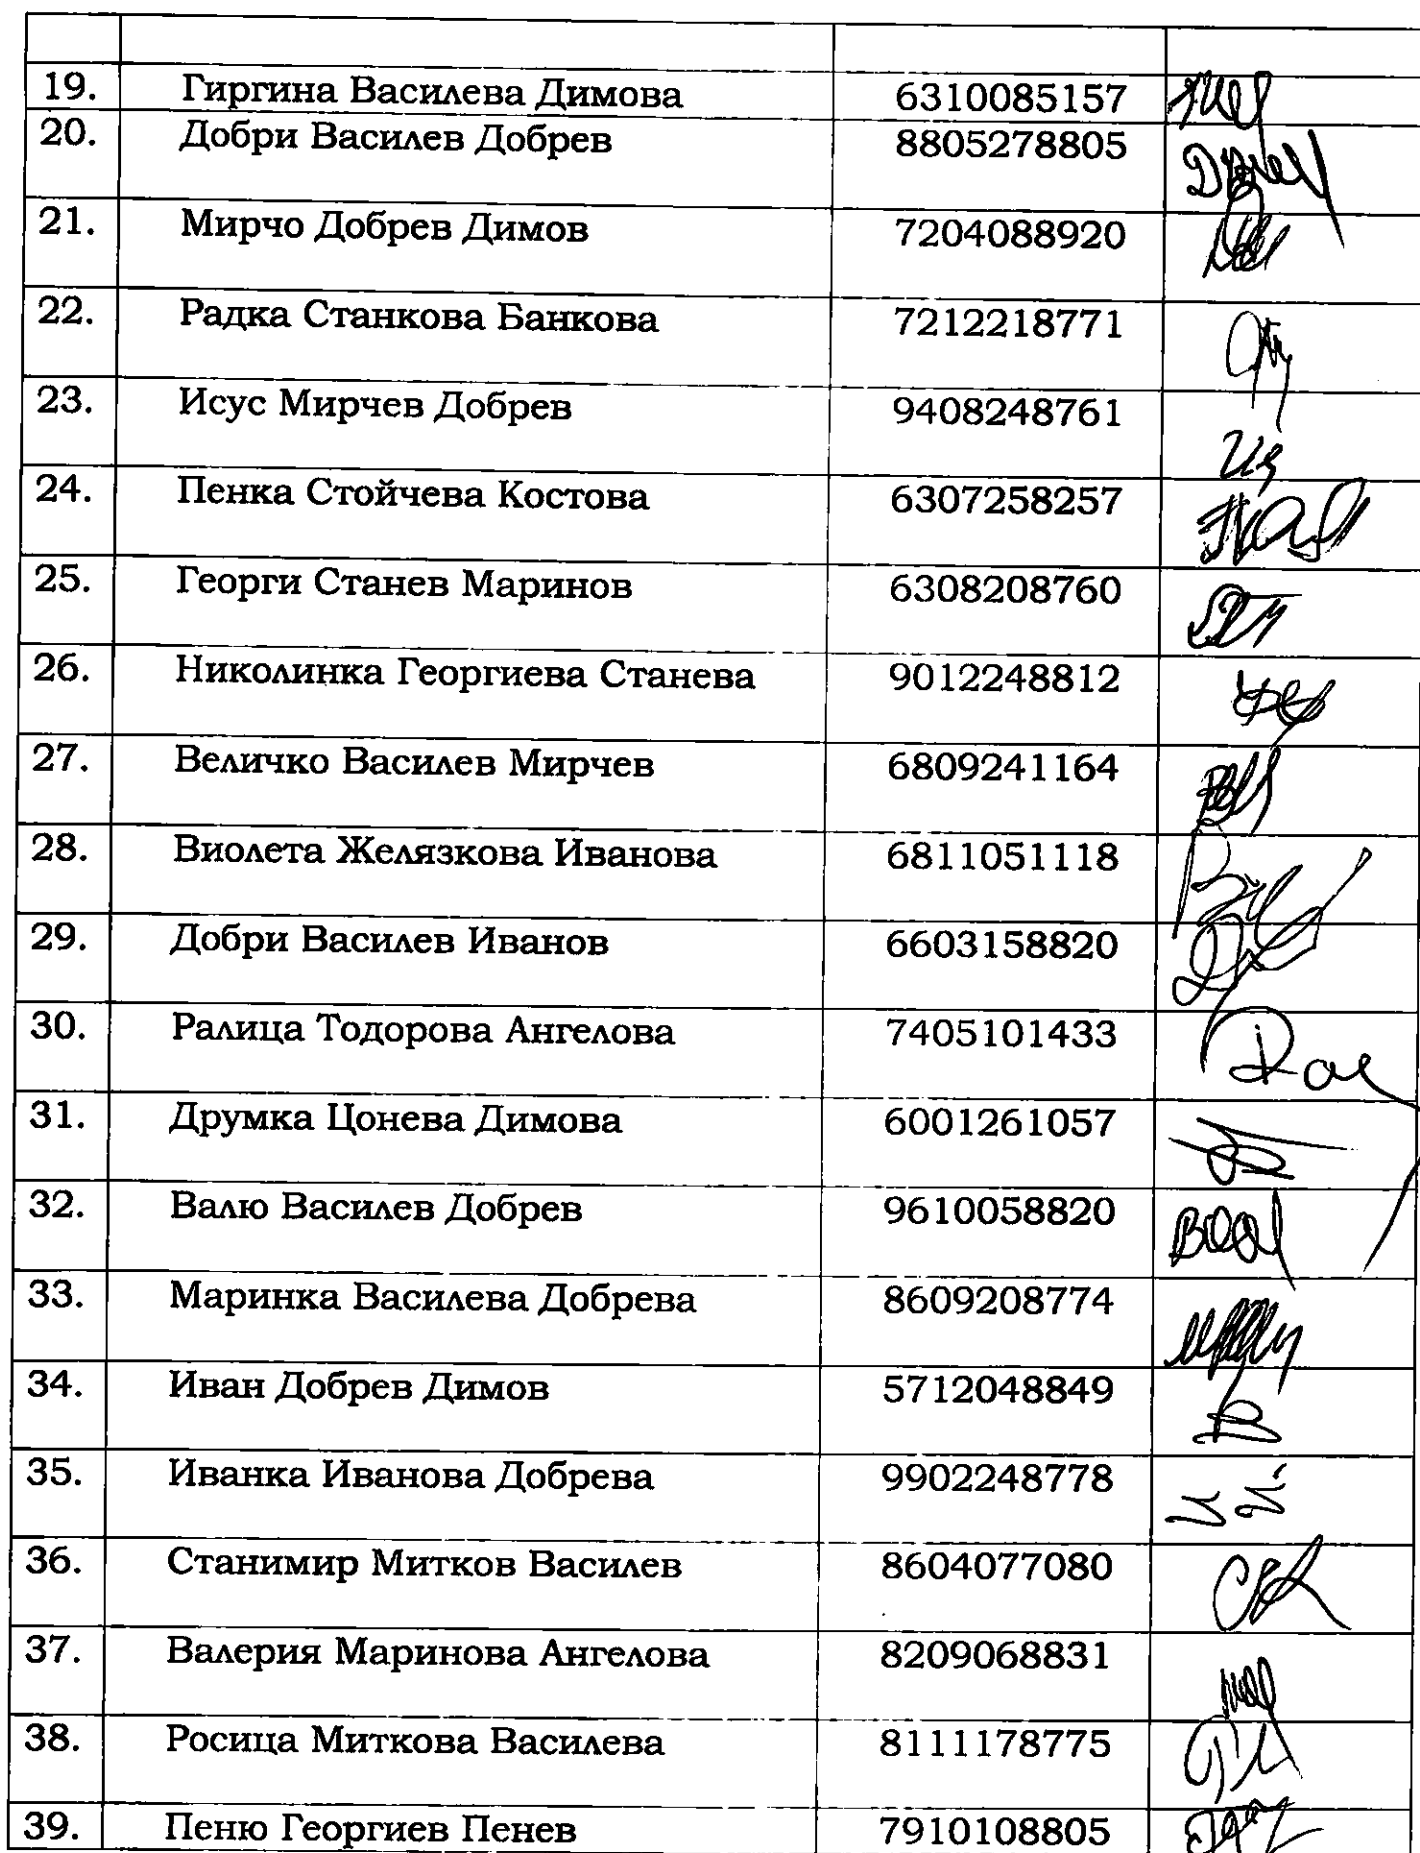 19. Гиргина Василева Димова 6310085157
20. Добри Василев Добрев 8805278805
21. Мирчо Добрев Димов 7204088920
22. Радка Станкова Банкова 7212218771
23. Исус Мирчев Добрев 9408248761
24. Пенка Стойчева Костова 6307258257
25. Георги Станев Маринов 6308208760
26. Николинка Георгиева Станева 9012248812
27. Величко Василев Мирчев 6809241164
28. Виолета Желязкова Иванова 6811051118
29. Добри Василев Иванов 6603158820
30. Ралица Тодорова Ангелова 7405101433
31. Друмка Цонева Димова 6001261057
32. Валю Василев Добрев 9610058820
33. Маринка Василева Добрева 8609208774
34. Иван Добрев Димов 5712048849
35. Иванка Иванова Добрева 9902248778
36. Станимир Митков Василев 8604077080
37. Валерия Маринова Ангелова 8209068831
38. Росица Миткова Василева 8111178775
39. Пеню Георгиев Пенев 7910108805